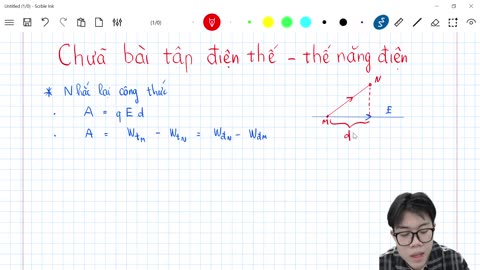 Untitled (1/0) - Scrble Ink
(1/0)
Chữa bài tập điện thế - thế năng điện
* Nhắc lại công thức
. A = q E d
. A = WtM - WtN = WđN - WđM
N
M
E
d